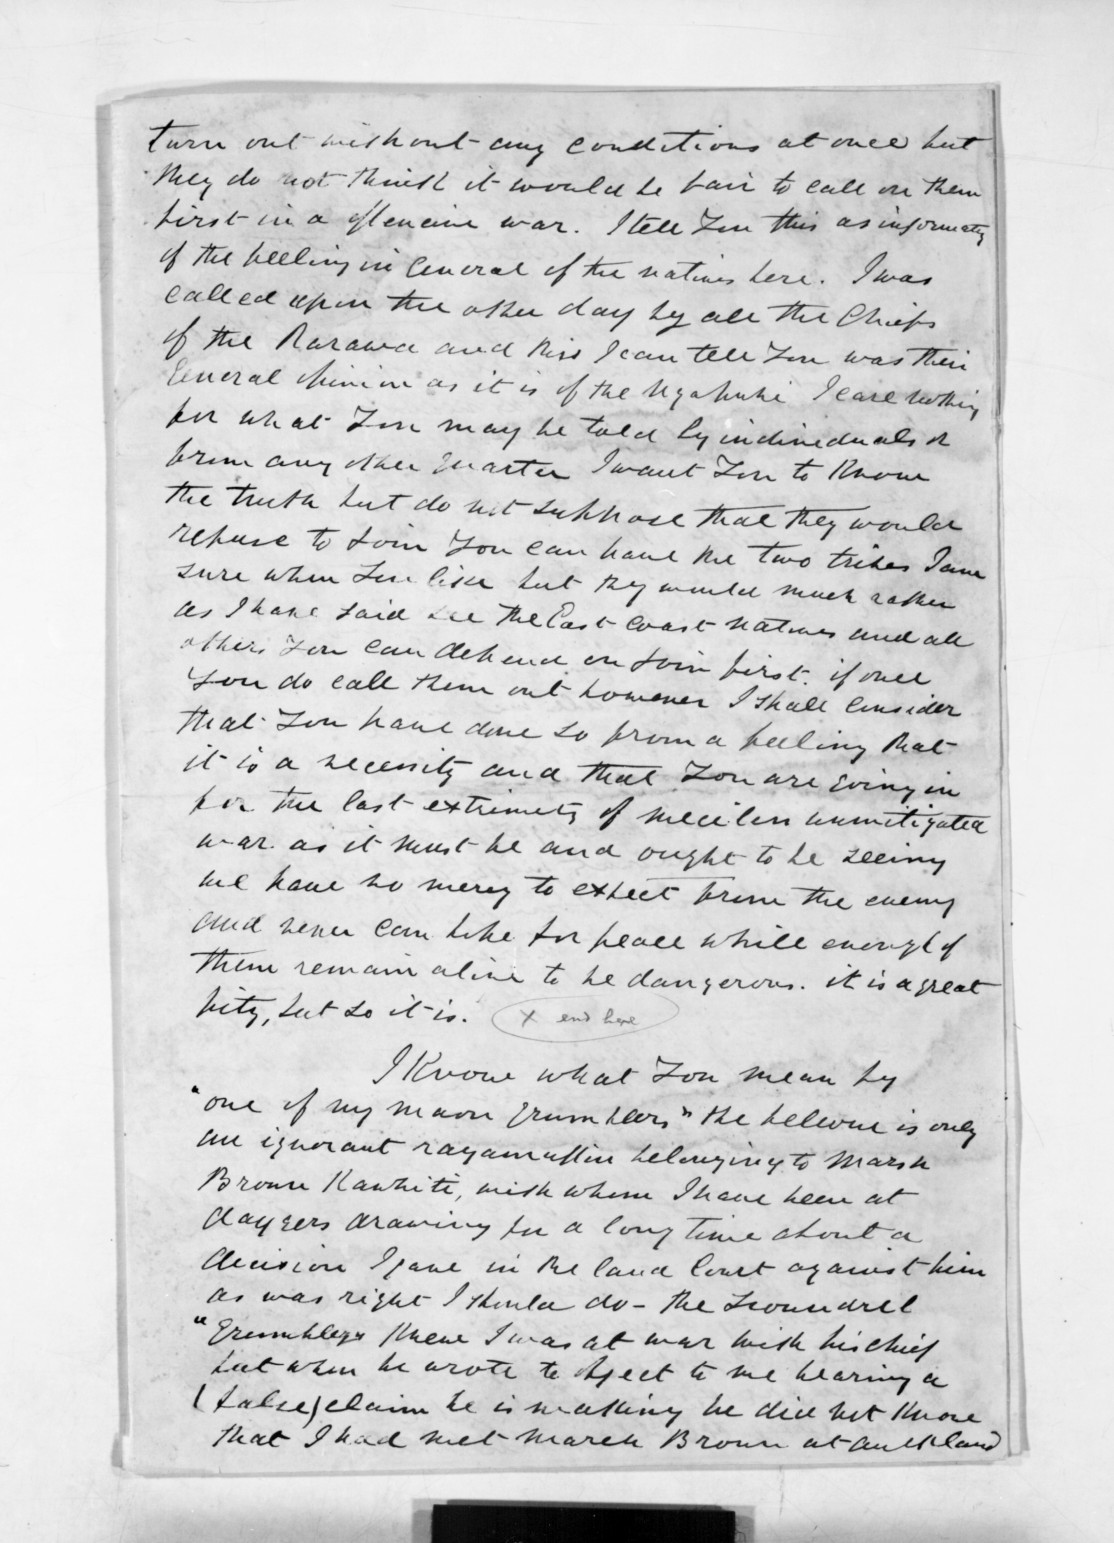 turn out without any conditions at once but
they do not think it would be fair to call on them
first in a offencive war. I tell you this as information
of the feeling in General of the natives here. I was
called upon the other day by all the Chiefs
of the Rarawa and this I can tell you was their
General opinion as it is of the Ngapuhi I care nothing
for what you may be told by individuals or
from any other quarter I want you to know
the truth but do not suppose that they would
refuse to join you can have the two tribes I am
sure when you like but they would much rather
as I have said see the East Coast natives and all
others you can depend on join first. if once
you do call them out however I shall consider
that you have done so from a feeling that
it is a necessity and that you are going in
for the last extremity of merciless unmitigated
war as it must be and ought to be seeing
we have no mercy to expect from the enemy
and never can hope for peace while enough of
them remain alive to be dangerous. it is a great
pity, but so it is. x end here
I know what you mean by
"one of my maori grumblers" the fellow is only
an ignorant ragamuffin belonging to Marsh
Brown Kawhiti, with whom I have been at
daggers drawing for a long time about a
decision I gave in the land Court against him
as was right I should do - the scoundrel
"Grumbler" knew I was at war with his chief
but when he wrote to object to me hearing a
(false) claim he is making he did not know
that I had met Marsh Brown at Auckland